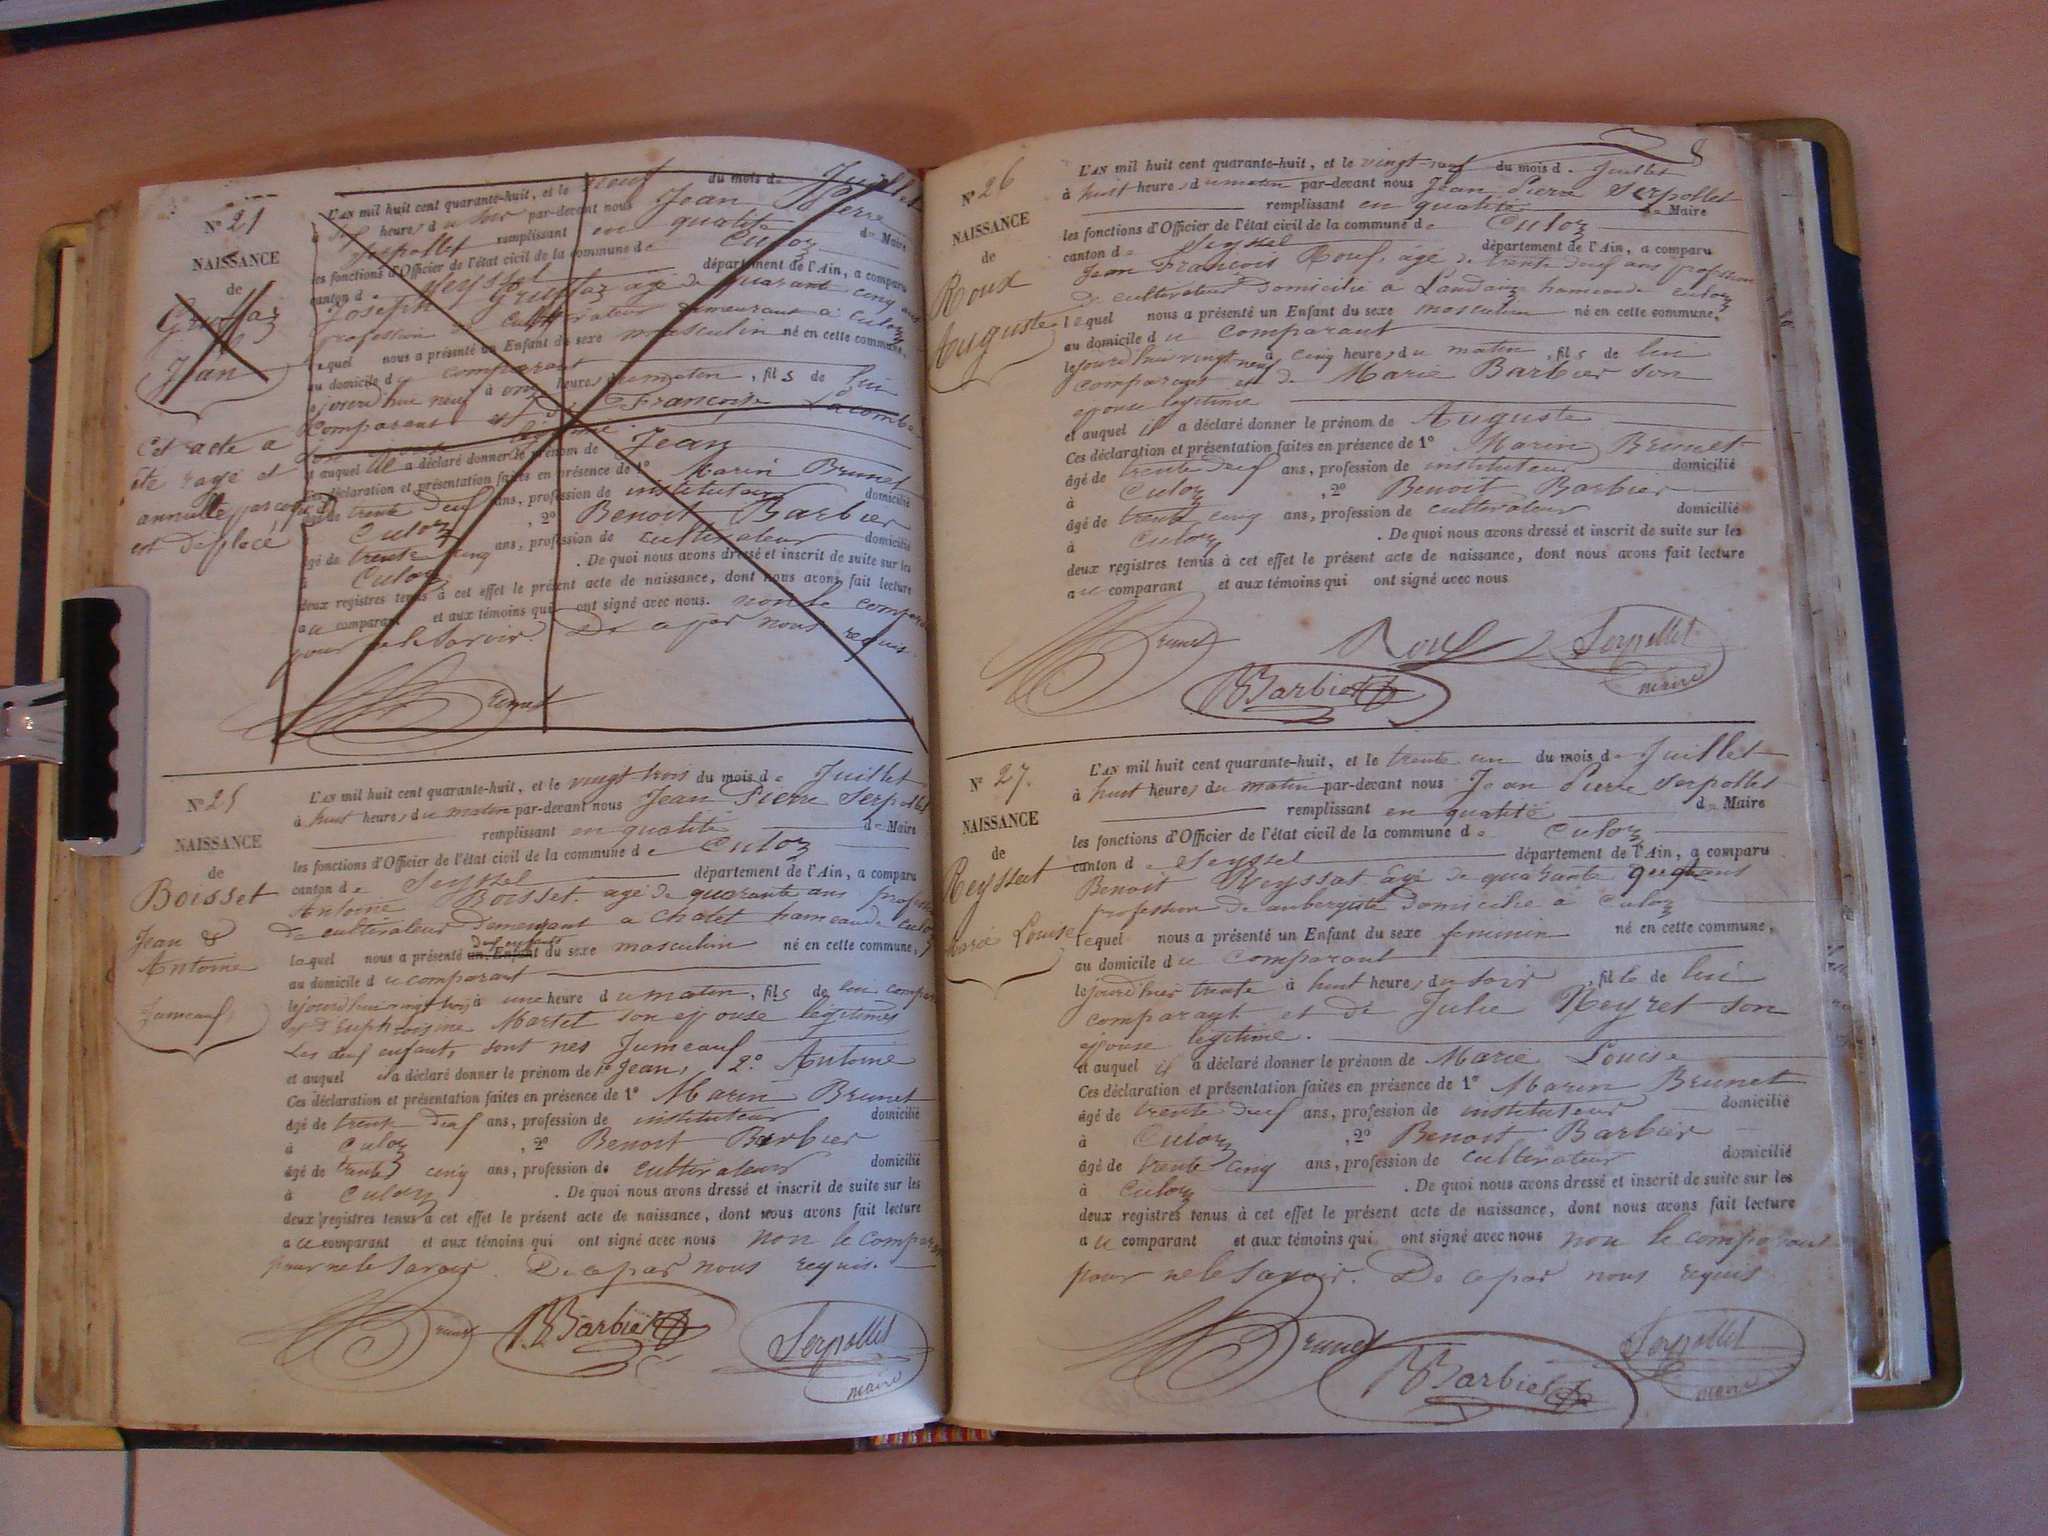 N° 21
NAISSANCE
de
Gruffaz
Jean
Cet acte a
été rayé et
annullé parcequ'il
est deplacé
L'AN mil huit cent quarante-huit, et le neuf du mois de Juillet
à six heures du soir par-devant nous Jean Pierre
Serpollet remplissant en qualité de Maire
les fonctions d'Officier de l'état civil de la commune de Culoz
canton de Seyssel département de l'Ain, a comparu
Joseph Gruffaz agé de quarante cinq ans
profession de cultivateur demeurant à Culoz
lequel nous a présenté un Enfant du sexe masculin né en cette commune,
au domicile du comparant
cejourd'hui neuf à onze heures du matin, fils de lui
comparant et de Françoise Lacombe
son épouse légitime
et auquel il a déclaré donner le prénom de Jean
Ces déclaration et présentation faites en présence de 1° Marin Brunet
âgé de trente deux ans, profession de instituteur domicilié
à Culoz, 2° Benoit Barbier
âgé de trente cinq ans, profession de cultivateur domicilié
à Culoz. De quoi nous avons dressé et inscrit de suite sur les
deux registres tenus à cet effet le présent acte de naissance, dont nous avons fait lecture
au comparant et aux témoins qui ont signé avec nous. non le comparant
pour ne le savoir. De ce par nous requis.
Brunet
N° 25
NAISSANCE
de
Boisset
Jean &
Antoine
Jumeaux
L'AN mil huit cent quarante-huit, et le vingt trois du mois de Juillet
à huit heures du matin par-devant nous Jean Pierre Serpollet
remplissant en qualité de Maire
les fonctions d'Officier de l'état civil de la commune de Culoz
canton de Seyssel département de l'Ain, a comparu
Antoine Boisset agé de quarante ans profession
de cultivateur demeurant a Chatel hameau de Culoz
lequel nous a présenté un Enfant des enfants du sexe masculin né en cette commune,
au domicile du comparant
cejourd'hui vingt trois à une heure du matin, fils de lui comparant
et d'Euphroisine Martet son épouse légitime
Les deux enfants sont nés Jumeaux
et auquel il a déclaré donner le prénom de 1° Jean, 2° Antoine
Ces déclaration et présentation faites en présence de 1° Marin Brunet
âgé de trente deux ans, profession de instituteur domicilié
à Culoz, 2° Benoit Barbier
âgé de trente cinq ans, profession de cultivateur domicilié
à Culoz. De quoi nous avons dressé et inscrit de suite sur les
deux registres tenus à cet effet le présent acte de naissance, dont nous avons fait lecture
au comparant et aux témoins qui ont signé avec nous non le comparant
pour ne le savoir. De ce par nous requis.
Brunet B Barbier Serpollet
maire
8
N° 26
NAISSANCE
de
Roux
Auguste
L'AN mil huit cent quarante-huit, et le vingt-neuf du mois de Juillet
à huit heures du matin par-devant nous Jean Pierre Serpollet
remplissant en qualité de Maire
les fonctions d'Officier de l'état civil de la commune de Culoz
canton de Seyssel département de l'Ain, a comparu
Jean François Roux, agé de trente deux ans profession
de cultivateur domicilié à Landaize hameau de Culoz
lequel nous a présenté un Enfant du sexe masculin né en cette commune,
au domicile du comparant
cejourd'hui vingt neuf à cinq heures du matin, fils de lui
comparant et de Marie Barbier son
épouse légitime
et auquel il a déclaré donner le prénom de Auguste
Ces déclaration et présentation faites en présence de 1° Marin Brunet
âgé de trente deux ans, profession de instituteur domicilié
à Culoz, 2° Benoit Barbier
âgé de trente cinq ans, profession de cultivateur domicilié
à Culoz. De quoi nous avons dressé et inscrit de suite sur les
deux registres tenus à cet effet le présent acte de naissance, dont nous avons fait lecture
au comparant et aux témoins qui ont signé avec nous
Brunet Roux Serpollet
B Barbier maire
N° 27.
NAISSANCE
de
Reyssat
Marie Louise
L'AN mil huit cent quarante-huit, et le trente un du mois de Juillet
à huit heures du matin par-devant nous Jean Pierre Serpollet
remplissant en qualité de Maire
les fonctions d'Officier de l'état civil de la commune de Culoz
canton de Seyssel département de l'Ain, a comparu
Benoit Reyssat agé de quarante ans
profession de aubergiste domicilié à Culoz
lequel nous a présenté un Enfant du sexe feminin né en cette commune,
au domicile du comparant
le jourd'hier trente à huit heures du soir, fille de lui
comparant et de Julie Reyret son
épouse légitime.
et auquel il a déclaré donner le prénom de Marie Louise
Ces déclaration et présentation faites en présence de 1° Marin Brunet
âgé de trente deux ans, profession de instituteur domicilié
à Culoz, 2° Benoit Barbier
âgé de trente cinq ans, profession de cultivateur domicilié
à Culoz. De quoi nous avons dressé et inscrit de suite sur les
deux registres tenus à cet effet le présent acte de naissance, dont nous avons fait lecture
au comparant et aux témoins qui ont signé avec nous non le comparant
pour ne le savoir. De ce par nous requis
Brunet B Barbier Serpollet
maire